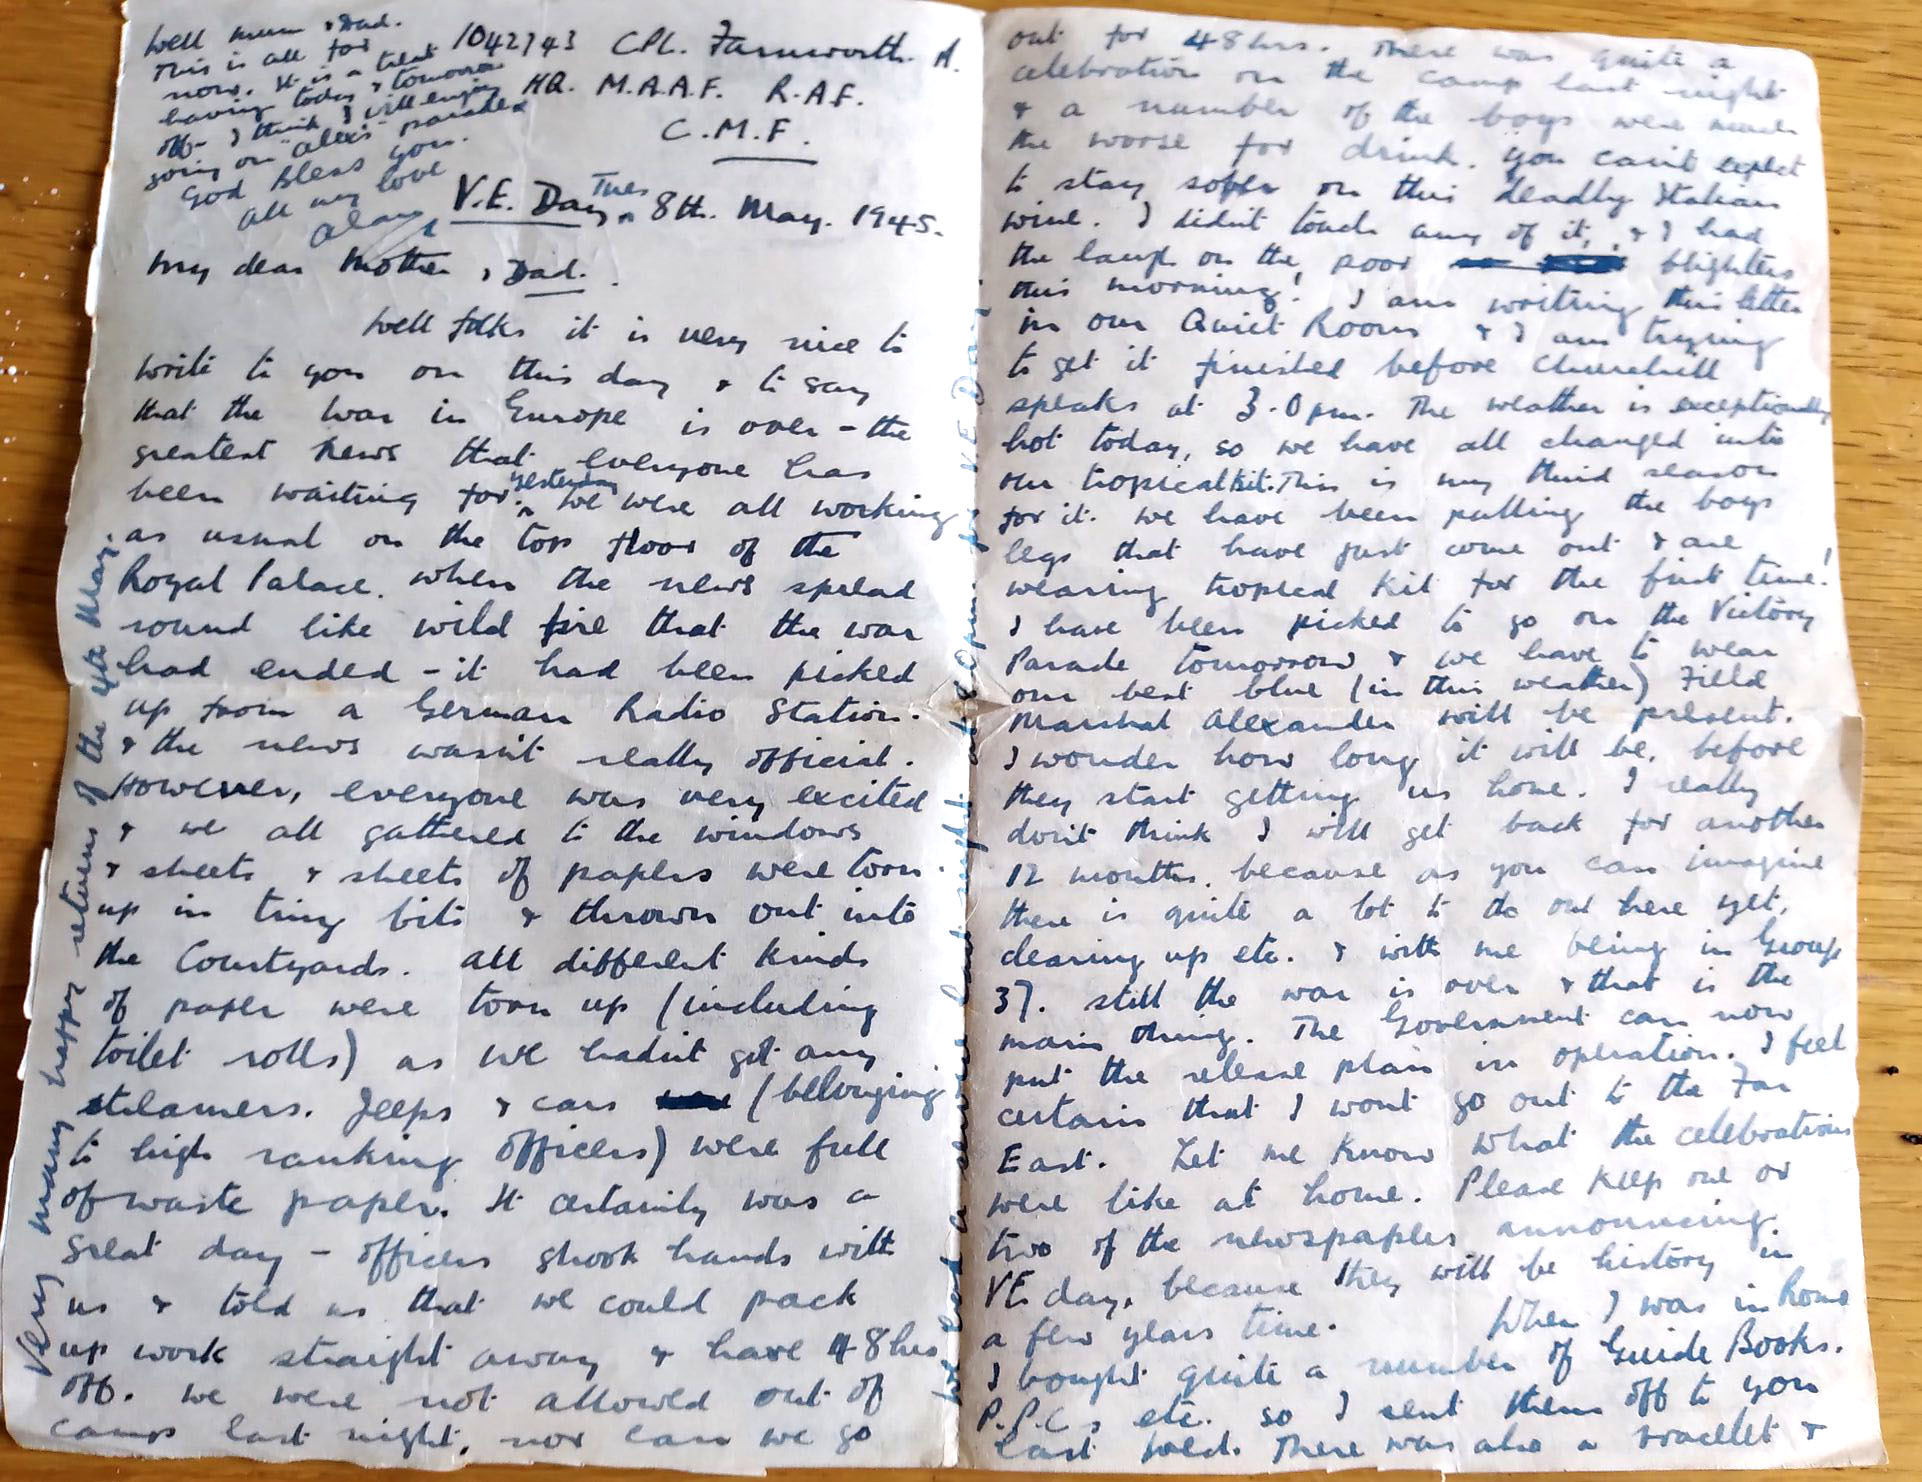 1042743 CPL. Farnworth. A.
HQ. M.A.A.F. R.A.F.
C.M.F.
V.E. Day Tues 8th. May. 1945.
My dear Mother & Dad.
Well folks it is very nice to
write to you on this day & to say
that the war in Europe is over - the
greatest news that everyone has
been waiting for. yesterday we were all working
as usual on the top floor of the
Royal Palace. when the news spread
round like wild fire that the war
had ended - it had been picked
up from a German Radio Station.
& the news wasn't really official.
However, everyone was very excited
& we all gathered to the windows
& sheets & sheets of papers were torn
up in tiny bits & thrown out into
the Courtyards. All different kinds
of paper were torn up (including
toilet rolls) as we hadn't got any
streamers. Jeeps & cars (belonging
to high ranking officers) were full
of waste paper. It certainly was a
great day - officers shook hands with
us & told us that we could pack
up work straight away & have 48 hrs
off. We were not allowed out of
camp last night, nor can we go
out for 48 hrs. There was quite a
celebration on the camp last night
& a number of the boys were much
the worse for drink. You can't expect
to stay sober on this deadly Italian
wine. I didn't touch any of it, & I had
the laugh on the poor blighters
this morning! I am writing this letter
in our Quiet Room & I am trying
to get it finished before Churchill
speaks at 3.0 pm. The weather is exceptionally
hot today, so we have all changed into
our tropical kit. This is my third season
for it. We have been pulling the boys
legs that have just come out & are
wearing tropical kit for the first time!
I have been picked to go on the Victory
Parade tomorrow & we have to wear
our best blue (in this weather) Field
Marshal Alexander will be present.
I wonder how long it will be, before
they start getting us home. I really
don't think I will get back for another
12 months, because as you can imagine
there is quite a lot to do out here yet,
clearing up etc. & with me being in Group
37. Still the war is over & that is the
main thing. The Government can now
put the release plan in operation. I feel
certain that I wont go out to the Far
East. Let me know what the celebrations
were like at home. Please keep one or
two of the newspapers announcing
VE day, because they will be history in
a few years time. When I was in Rome
I bought quite a number of Guide Books.
P.P.C's etc. so I sent them off to you
last week. There was also a bracelet &
Well mum & Dad.
This is all for
now. It is a treat
having today & tomorrow
off. I think I will enjoy
going on "Alex's" parade
God Bless you.
All my love
Alan
Very many happy returns of the 4th May.
We had a service last night at 6.0pm. for VE Day